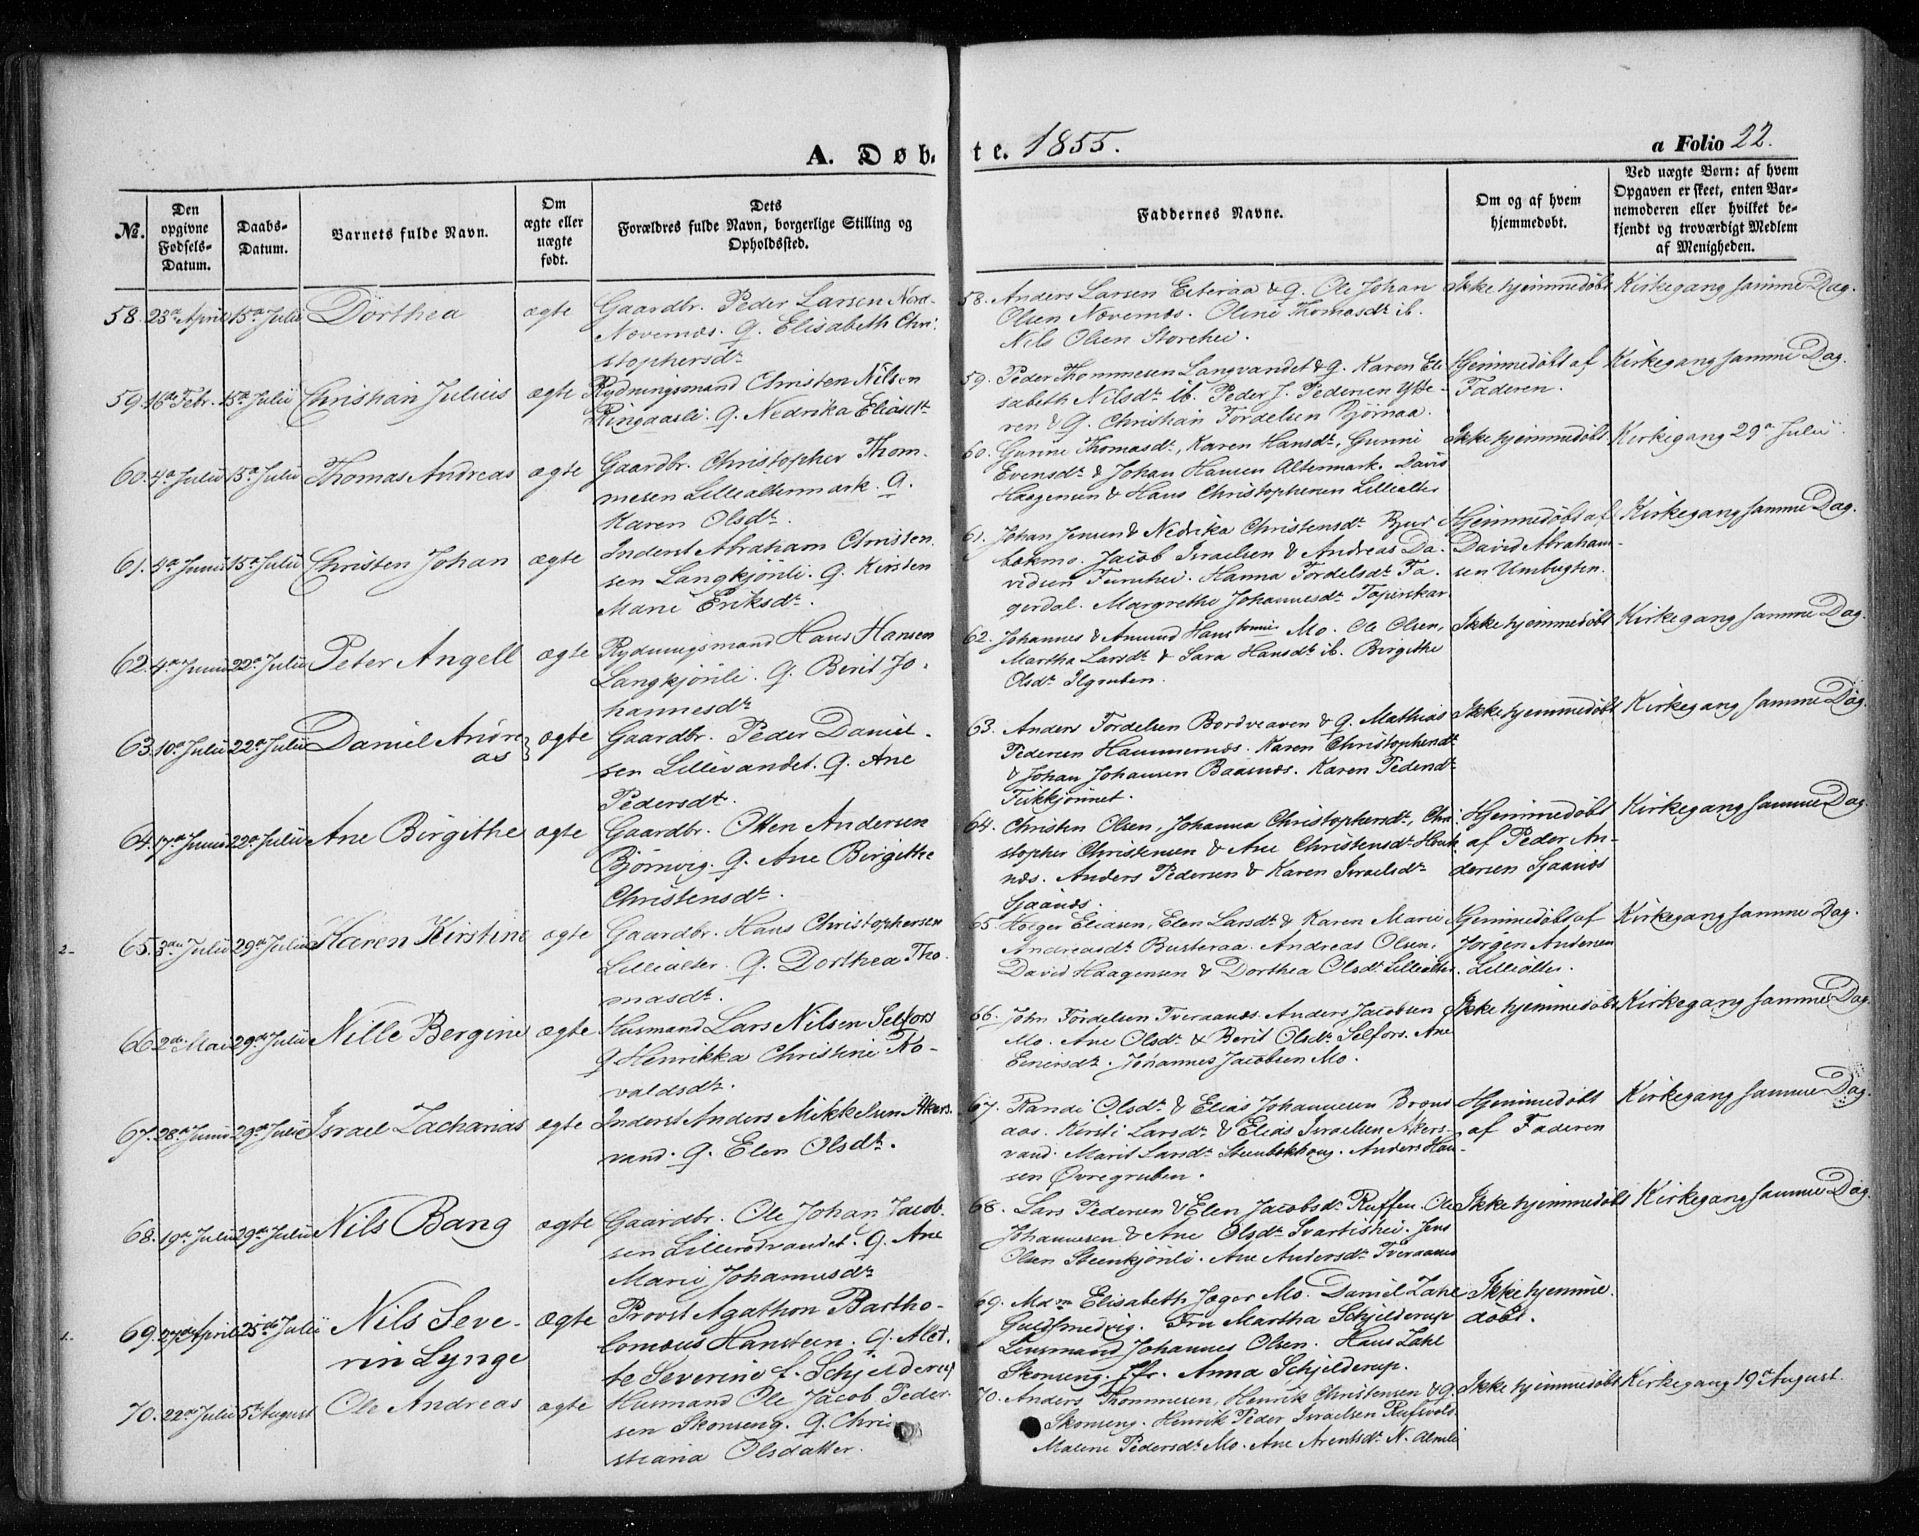 A. Døbte. 1855. a Folio 22.
No.
Den opgivne Fødsels-Datum.
Daabs-Datum.
Barnets fulde Navn.
Om ægte eller uægte født.
Dets Forældres fulde Navn, borgerlige Stilling og Opholdssted.
Faddernes Navne.
Om og af hvem hjemmedøbt.
Ved uægte Børn: af hvem Opgaven er skeet, enten Barnemoderen eller hvilket bekjendt og troværdigt Medlem af Menigheden.
58. 23de April 15de Julii Dorthea ægte Gaardbr. Peder Larsen Nord-
Nævernæs. Q. Elisabeth Chri-
stophersdr.
58. Anders Larsen Esteraa & Q. Ole Johan
Olsen Nævernæs. Oline Thomasdr. ib.
Nils Olsen Storehei.
Ikke hjemmedøbt Kirkegang samme Dag.
59. 16de Febr. 15de Julii Christian Julius ægte Rydningsmand Christen Nilsen
Ringaasli. Q. Nedrika Eliasdr.
59. Peder Thommesen Langvandet & Q. Karen Eli-
sabeth Nilsdr. ib. Peder J. Pedersen Ytte-
ren & Q. Christian Fordelsen Bjørnaa.
Hjemmedøbt af
Faderen.
Kirkegang samme Dag.
60. 4de Julii 15de Julii Thomas Andreas ægte Gaardbr. Christopher Thom-
mesen Lillealtermark. Q.
Karen Olsdr.
60. Gurine Thomasdr., Karen Hansdr., Gunni
Evensdr. & Johan Hansen Altermark. David
Haagensen & Hans Christophersen Lillealter
Ikke hjemmedøbt Kirkegang 29de Julii
61. 4de Junii 15de Julii Christen Johan ægte Inderst Abraham Christen-
sen Langkjønli. Q. Kirsten
Marie Eriksdr.
61. Johan Jensen & Nedrika Christensdr. Bjur-
bækmo. Jacob Israelsen & Andreas Da-
vidsen Furuhei. Hanna Fordelsdr. Fa-
gerdal. Margrethe Johannesdr. Tapeskar
Hjemmedøbt af
David Abraham-
sen Umbugten.
Kirkegang samme Dag.
62. 4de Junii 22de Julii Peter Angell ægte Rydningsmand Hans Hansen
Langkjønli. Q. Berit Jo-
hannesdr.
62. Johannes & Amund Hans sønner Mo. Ole Olsen,
Martha Larsdr. & Sara Hansdr. ib. Birgithe
Olsdr. Ilgruben.
Ikke hjemmedøbt Kirkegang samme Dag
63. 10de Julii 22de Julii Daniel Andre-
as ægte Gaardbr. Peder Daniel-
sen Lillevandet. Q. Ane
Pedersdr.
63. Anders Fordelsen Bordveaven & Q. Mathias
Pedersen Hammernæs. Karen Christophersdr.
& Johan Johansen Baasnæs. Karen Pedersdr.
Fiskkjønnet.
Ikke hjemmedøbt Kirkegang samme Dag.
64. 17de Junii 22de Julii Ane Birgithe ægte Gaardbr. Otten Andersen
Bjørnvig. Q. Ane Birgithe
Christensdr.
64. Christen Olsen, Johanna Christophersdr., Chri-
stopher Christensen & Ane Christensdr.
næs. Anders Pedersen & Karen Israelsdr.
Sjaanæs.
Hjemmedøbt
af Peder An-
dersen Sjaanæs
Kirkegang samme Dag
2- 65. 3die Julii 29de Julii Karen Kirstine ægte Gaardbr. Hans Christophersen
Lillialter. Q. Dorthea Tho-
masdr.
65. Holger Eliasen, Elen Larsdr. & Karen Marie
Andreasdr. Busteraa. Andreas Olsen,
David Haagensen & Dorthea Olsdr. Lillialter.
Hjemmedøbt af
Jørgen Andersen
Lillialter.
Kirkegang samme Dag.
66. 2den Mai 29de Julii Nille Bergine ægte Husmand Lars Nilsen Selfors
Q Henrikka Christine Ro-
valdsdr.
66. John Fordelsen Tveraanæs. Anders Jacobsen
Mo. Ane Olsdr. & Berit Olsdr. Selfors. Ane
Einersdr. Johannes Jacobsen Mo.
Ikke hjemmedøbt Kirkegang samme Dag.
67. 28de Junii 29de Julii Israel Zacharias ægte Inderst Anders Mikkelsen Akers-
vand. Q. Elen Olsdr.
67. Randi Olsdr. & Elias Johannesen Brænd-
aas. Kirsti Larsdr. & Elias Israelsen Akers-
vand. Marit Larsdr. Steenbekhoug. Anders Han-
sen Øvregruben.
Hjemmedøbt
af Faderen
Kirkegang samme Dag.
68. 19de Julii 29de Julii Nils Bang ægte Gaardbr. Ole Johan Jacob-
sen Lillerødvandet. Q. Ane
Marie Johannesdr.
68. Lars Pedersen & Elen Jacobsdr. Ruffen. Ole
Johannesen & Ane Olsdr. Svartishei. Jens
Olsen Steenkjønli. Ane Andersdr. Tveraanæs
Ikke hjemmedøbt Kirkegang samme Dag.
1- 69. 27de April 25de Julii Nils Seve-
rin Lynge ægte Provst Agathon Bartho-
lomæus Hansteen. Q. Alet-
te Severine f. Schjelderup
69. Mdm Elisabeth Jæger Mo. Daniel Zahl
Guldsmedvig. Fru Martha Schjelderup
Lensmand Johannes Olsen. Hans Zahl
Skonseng. Jfr. Anna Schjelderup.
Ikke hjemme-
døbt.
70. 22de Julii 5te August Ole Andreas ægte Husmand Ole Jacob Peder-
sen Skonseng. Q. Chri-
stiania Olsdatter.
70. Anders Thommesen, Henrik Christensen & Q.
Skonseng. Henrik Peder Israelsen Rufsvold.
Malene Pedersdr. Mo. Ane Arentsdr. N. Almli
Ikke hjemmedøbt Kirkegang 19de August.